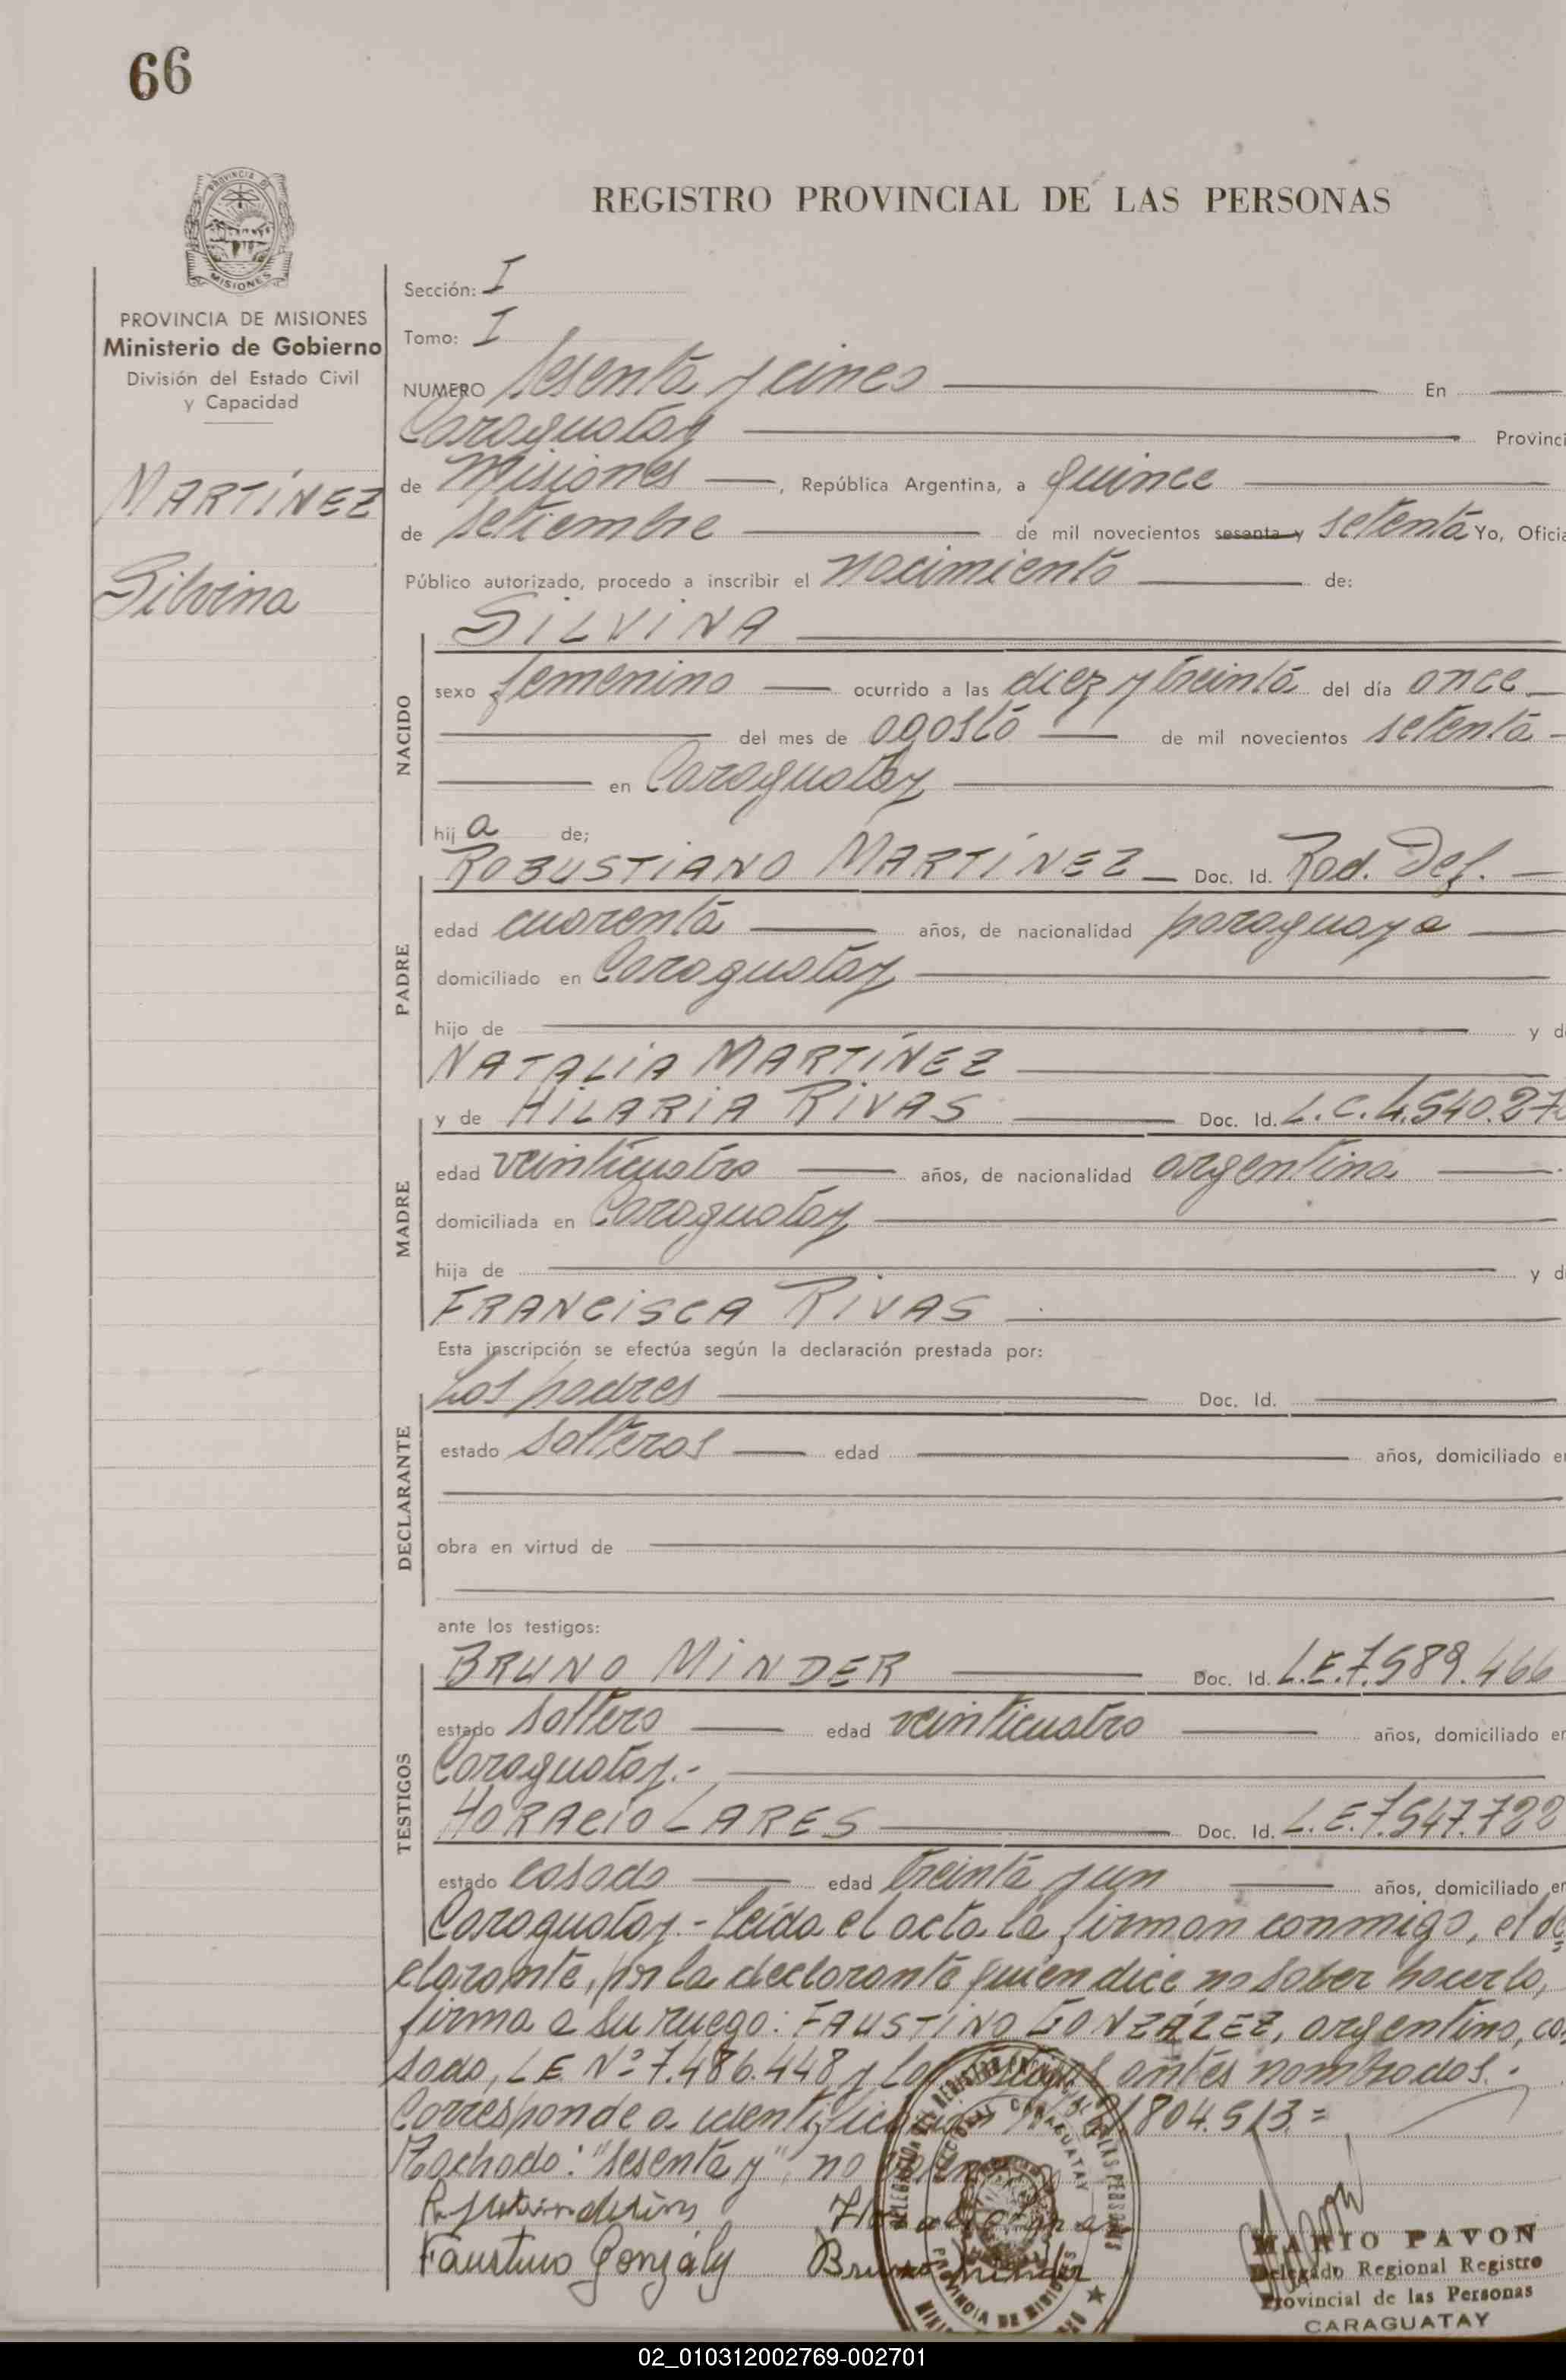 66
REGISTRO PROVINCIAL DE LAS PERSONAS
PROVINCIA DE MISIONES
MISIONES
PROVINCIA DE MISIONES
Ministerio de Gobierno
División del Estado Civil
y Capacidad
MARTÍNEZ
Silvina
Sección: I
Tomo: I
NUMERO Sesenta y cinco En
Caraguatay Provinci
de Misiones, República Argentina, a quince
de setiembre de mil novecientos sesenta y setenta Yo, Oficia
Público autorizado, procedo a inscribir el nacimiento de:
NACIDO
SILVINA
sexo femenino ocurrido a las diez y treinta del día once
del mes de agosto de mil novecientos setenta
en Caraguatay
hij a de;
PADRE
ROBUSTIANO MARTÍNEZ Doc. Id. Rad. Def.
edad cuarenta años, de nacionalidad paraguaya
domiciliado en Caraguatay
hijo de y d
NATALIA MARTÍNEZ
MADRE
y de HILARIA RIVAS Doc. Id. L.C. 4.540.27
edad veinticuatro años, de nacionalidad argentina
domiciliada en Caraguatay
hija de y d
FRANCISCA RIVAS
Esta inscripción se efectúa según la declaración prestada por:
DECLARANTE
Los padres Doc. Id.
estado solteros edad años, domiciliado en
obra en virtud de
ante los testigos:
TESTIGOS
BRUNO MINDER Doc. Id. L.E. 7.589.466
estado soltero edad veinticuatro años, domiciliado en
Caraguatay.-
HORACIO LARES Doc. Id. L.E. 7.547.722
estado casado edad treinta y un años, domiciliado en
Caraguatay.- Leída el acta la firman conmigo, el de=
clarante, por la declarante quien dice no saber hacerlo,
firma a su ruego: FAUSTINO GONZÁLEZ, argentino, ca=
sado, LE Nº 7.486.448 y los testigos antes nombrados.-
Corresponde a identificación 804.513=
Tachado: "sesenta y" no vale
Faustino Gonzaly Bruno Minder
MARIO PAVON
Delegado Regional Registro
Provincial de las Personas
CARAGUATAY
02_010312002769-002701